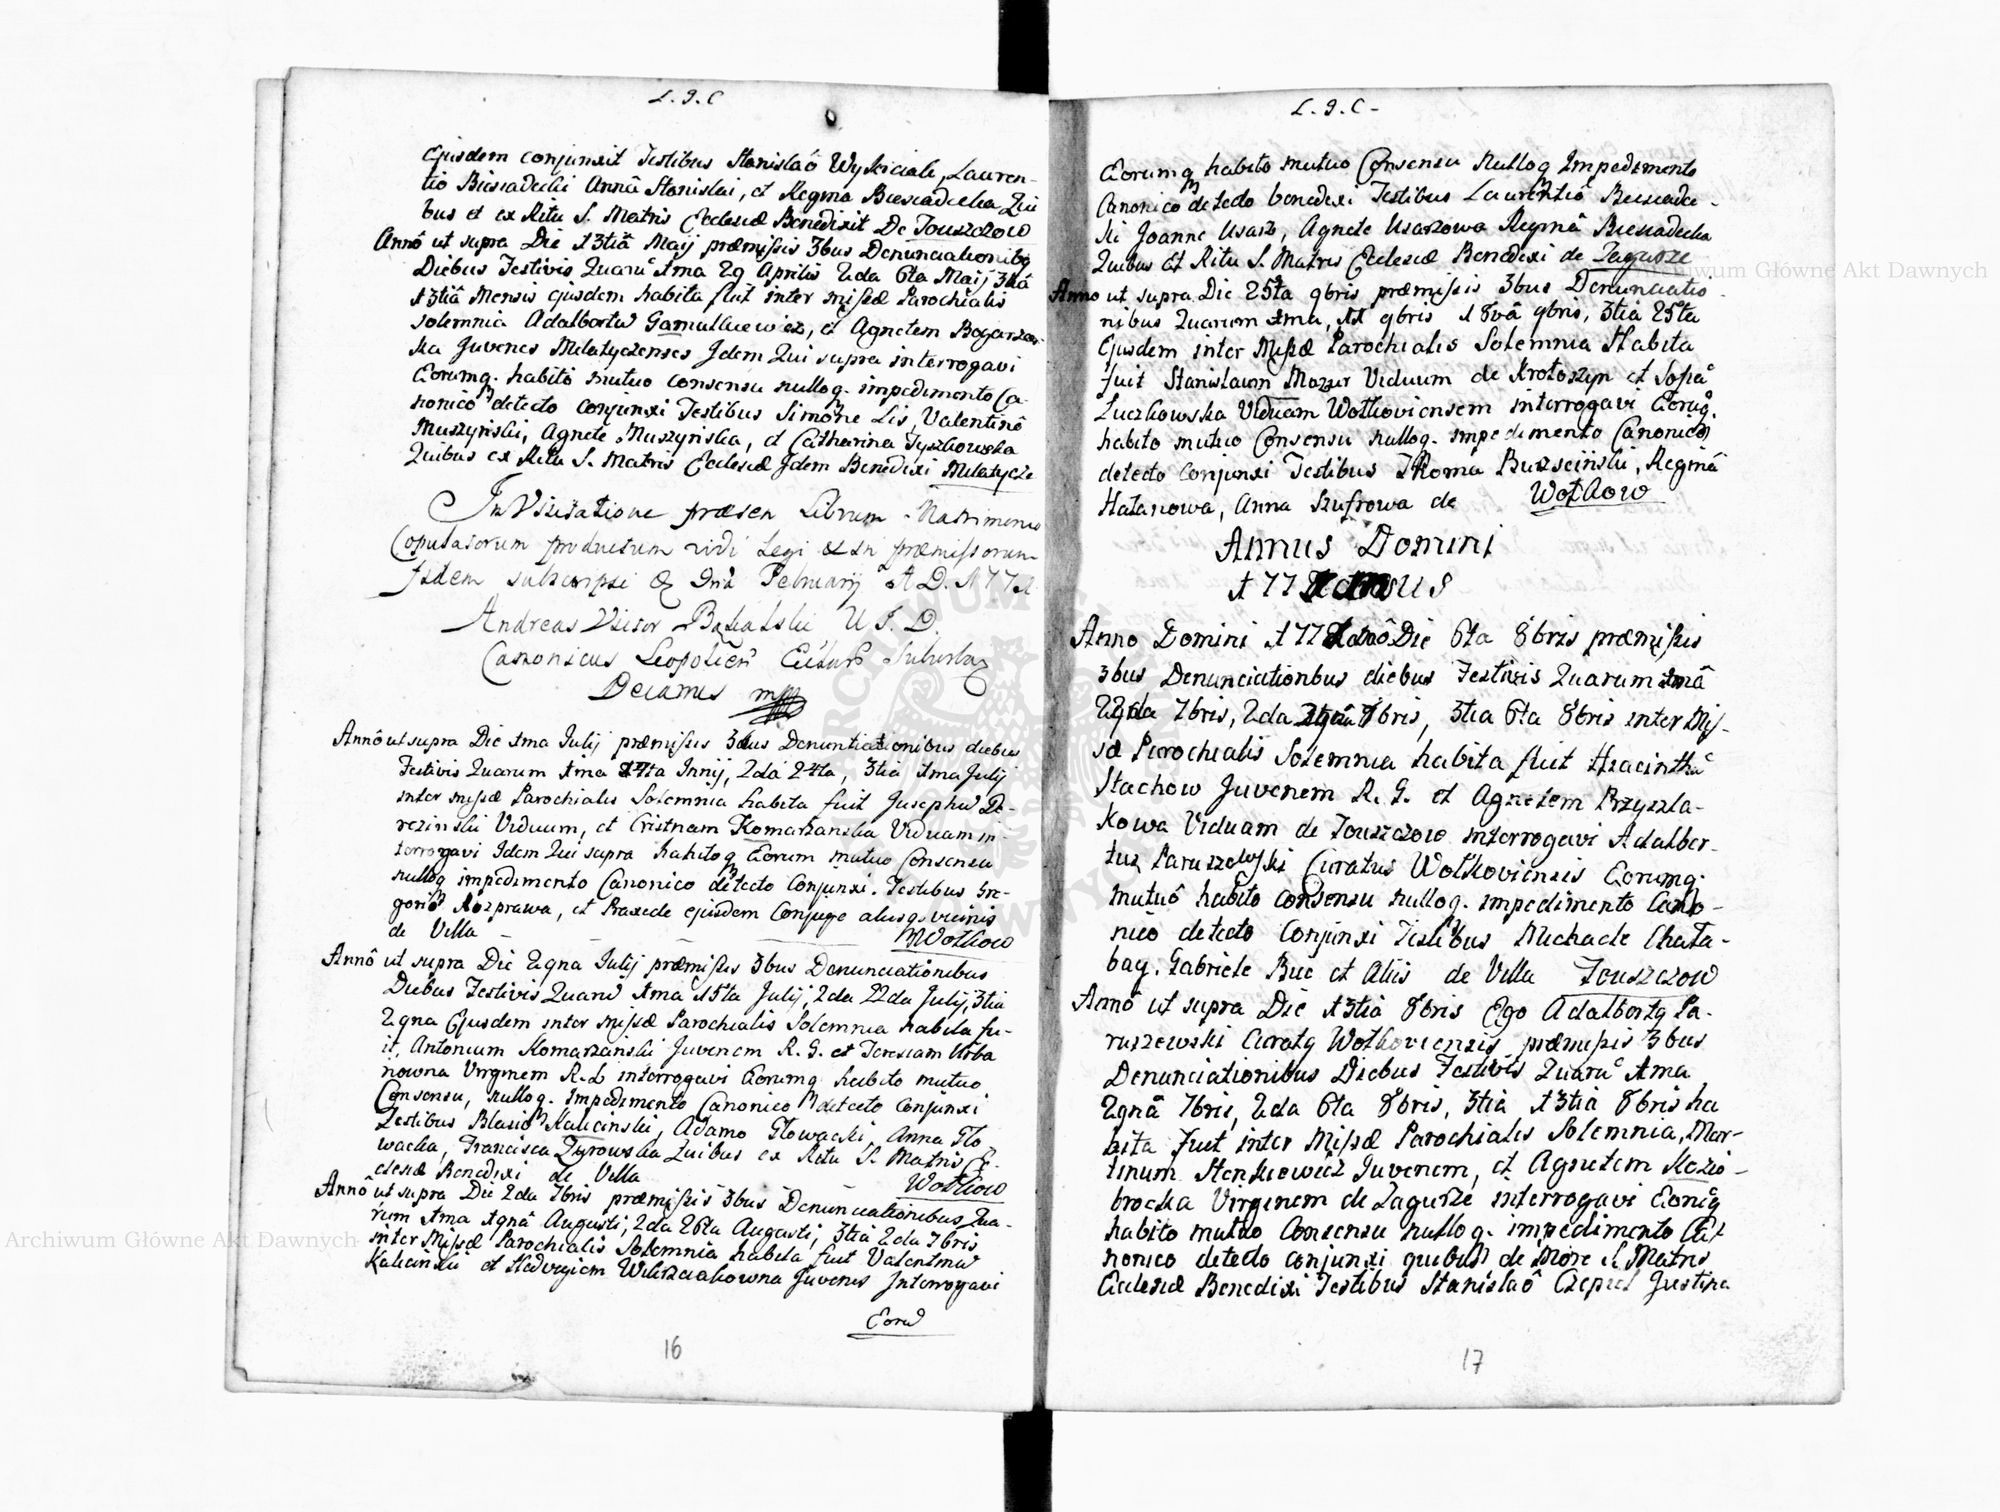 L. J. C
Ejusdem conjunxit Testibus Stanislaô Lauren-
tio Biesiadecki Annâ Stanislai, et Regina Biesiadecka Qui
bus et ex Ritu S. Matris Ecclesiæ Benedixit De Touszczow
Annô ut supra Die 13tiâ Maij præmissis 3bus Denunciationibq
Diebus Festivis Quarū 1ma 29 Aprilis 2da 6ta Maij 3tiâ
13tiâ Mensis ejusdem habita fuit inter missæ Parochialis
solemnia Adalbertū et Agnetem
ka Juvenes Milatyczenses Idem Qui supra interrogavi
Eorumq. habitô mutuo consensu nulloq. impedimento Ca-
nonico detecto conjunxi Testibus Simône Lis, Valentinô
Muszyński, Agnete Muszyńska, et Catharina Tyszkowska
Quibus ex Ritu S. Matris Ecclesiæ Idem Benedixi Milatycze
In Visitatione præsen Librum Matrimonio
Copulatorum productum vidi Legi et in præmissorum
fidem subscripsi Februarij A. D. 177
Andreas Victor U. J. D.
Canonicus
Decanus mpp
Annô ut supra Die 1ma Julij præmissis 3bus Denuntiationibus diebus
Festivis Quarum 1ma 17ta Junij, 2dâ 24ta, 3tiâ 1ma Julij
inter missæ Parochialis Solemnia habita fuit Josephū De-
rezinski Viduum, et Cristnam Komarzanska Viduam in-
terrogavi Idem Qui supra habitoq Eorum mutuo Consensu
nulloq impedimento Canonico detecto Conjunxi. Testibus Gre-
goriô Rozprawa, et Praxede ejusdem Conjuge aliisq. vicinis
de Villa Wołkow
Annô ut supra Die 29na Julij præmissis 3bus Denunciationibus
Diebus Festivis Quarū 1ma 15ta Julij, 2da 22da Julij, 3tia
29na Ejusdem inter missæ Parochialis Solemnia habita fu-
it, Antonium Komarzański Juvenem R. G. et Teresiam Urba
nowna Virginem R. L interrogavi Eorumq habito mutuo
Consensu, nulloq. Impedimento Canonico detecto conjunxi
Testibus Blasiô Kaliciński, Adamo Głowacki, Anna Gło
wacka, Francisca Zyrowska Quibus ex Ritu S. Matris Ec-
clesiæ Benedixi de Villa Wołkow
Annô ut supra Die 2da 7bris præmissis 3bus Denunciationibus Qua-
rum 1ma 19nâ Augusti, 2da 26ta Augusti, 3tiâ 2da 7bris
inter Missæ Parochialis Solemnia habita fuit Valentinū
Kaliciński et Hedvigiem Juvenes Interrogavi
Eorū
16
L. J. C -
Eorumq habito mutuo Consensu Nulloq Impedimento
Canonico detecto benedixi Testibus Laurentiô Biesiadec-
ki Joanne Usarz, Agnete Usarzowa Reginâ Biesiadecka
Quibus Et Ritu S. Matris Ecclesiæ Benedixi de Zagurze
Anno ut supra Die 25ta 9bris præmissis 3bus Denunciatio-
nibus Quarum 1ma, 11 9bris 18vâ 9bris, 3tiâ 25ta
Ejusdem inter Missæ Parochialis Solemnia Habita
fuit Stanislaum Mazur Viduum de Krotoszyn et Sofiā
Łuczkowska Viduam Wołkoviensem interrogavi Eorūq.
habito mutuo Consensu nulloq. impedimento Canonico
detecto Conjunxi Testibus Thoma Reginâ
Hatanowa, Anna Szufrowa de Wołkow
Annus Domini
177
Anno Domini 177 Die 6ta 8bris præmissis
3bus Denunciationbus diebus Festivis Quarum 1mâ
22da 7bris, 2da 8bris, 3tia 6ta 8bris inter Mis-
sæ Parochialis Solemnia habita fuit Hyacinthū
Stachow Juvenem R. G. et Agnetem Przyszla-
kowa Viduam de Touszczow interrogavi Adalber-
tus Paruszewski Curatus Wołkoviensis Eorumq.
mutuô habito consensu nulloq. impedimento Cano-
nico detecto Conjunxi Testibus Michaele Chała-
bay. Gabriele Buc et Aliis de Villa Touszczow
Annô ut supra Die 13tiâ 8bris Ego Adalbertq Pa-
ruszewski Curatq Wołkoviensis præmissis 3bus
Denunciationibus Diebus Festivis Quarū 1ma
29nâ 7bris, 2da 6ta 8bris, 3tiâ 13tiâ 8bris ha
bita fuit inter Missæ Parochialis Solemnia, Mar-
tinum Stenkiewicz Juvenem, et Agnetem Kozio-
brocka Virginem de Zagurze interrogavi Eorūq
habito mutuo Consensu nulloq. impedimento Ca-
nonico detecto conjunxi quibus de More S. Matris
Ecclesiæ Benedixi Testibus Stanislaô Czepiel Justina
17
Archiwum Główne Akt Dawnych
Archiwum Główne Akt Dawnych